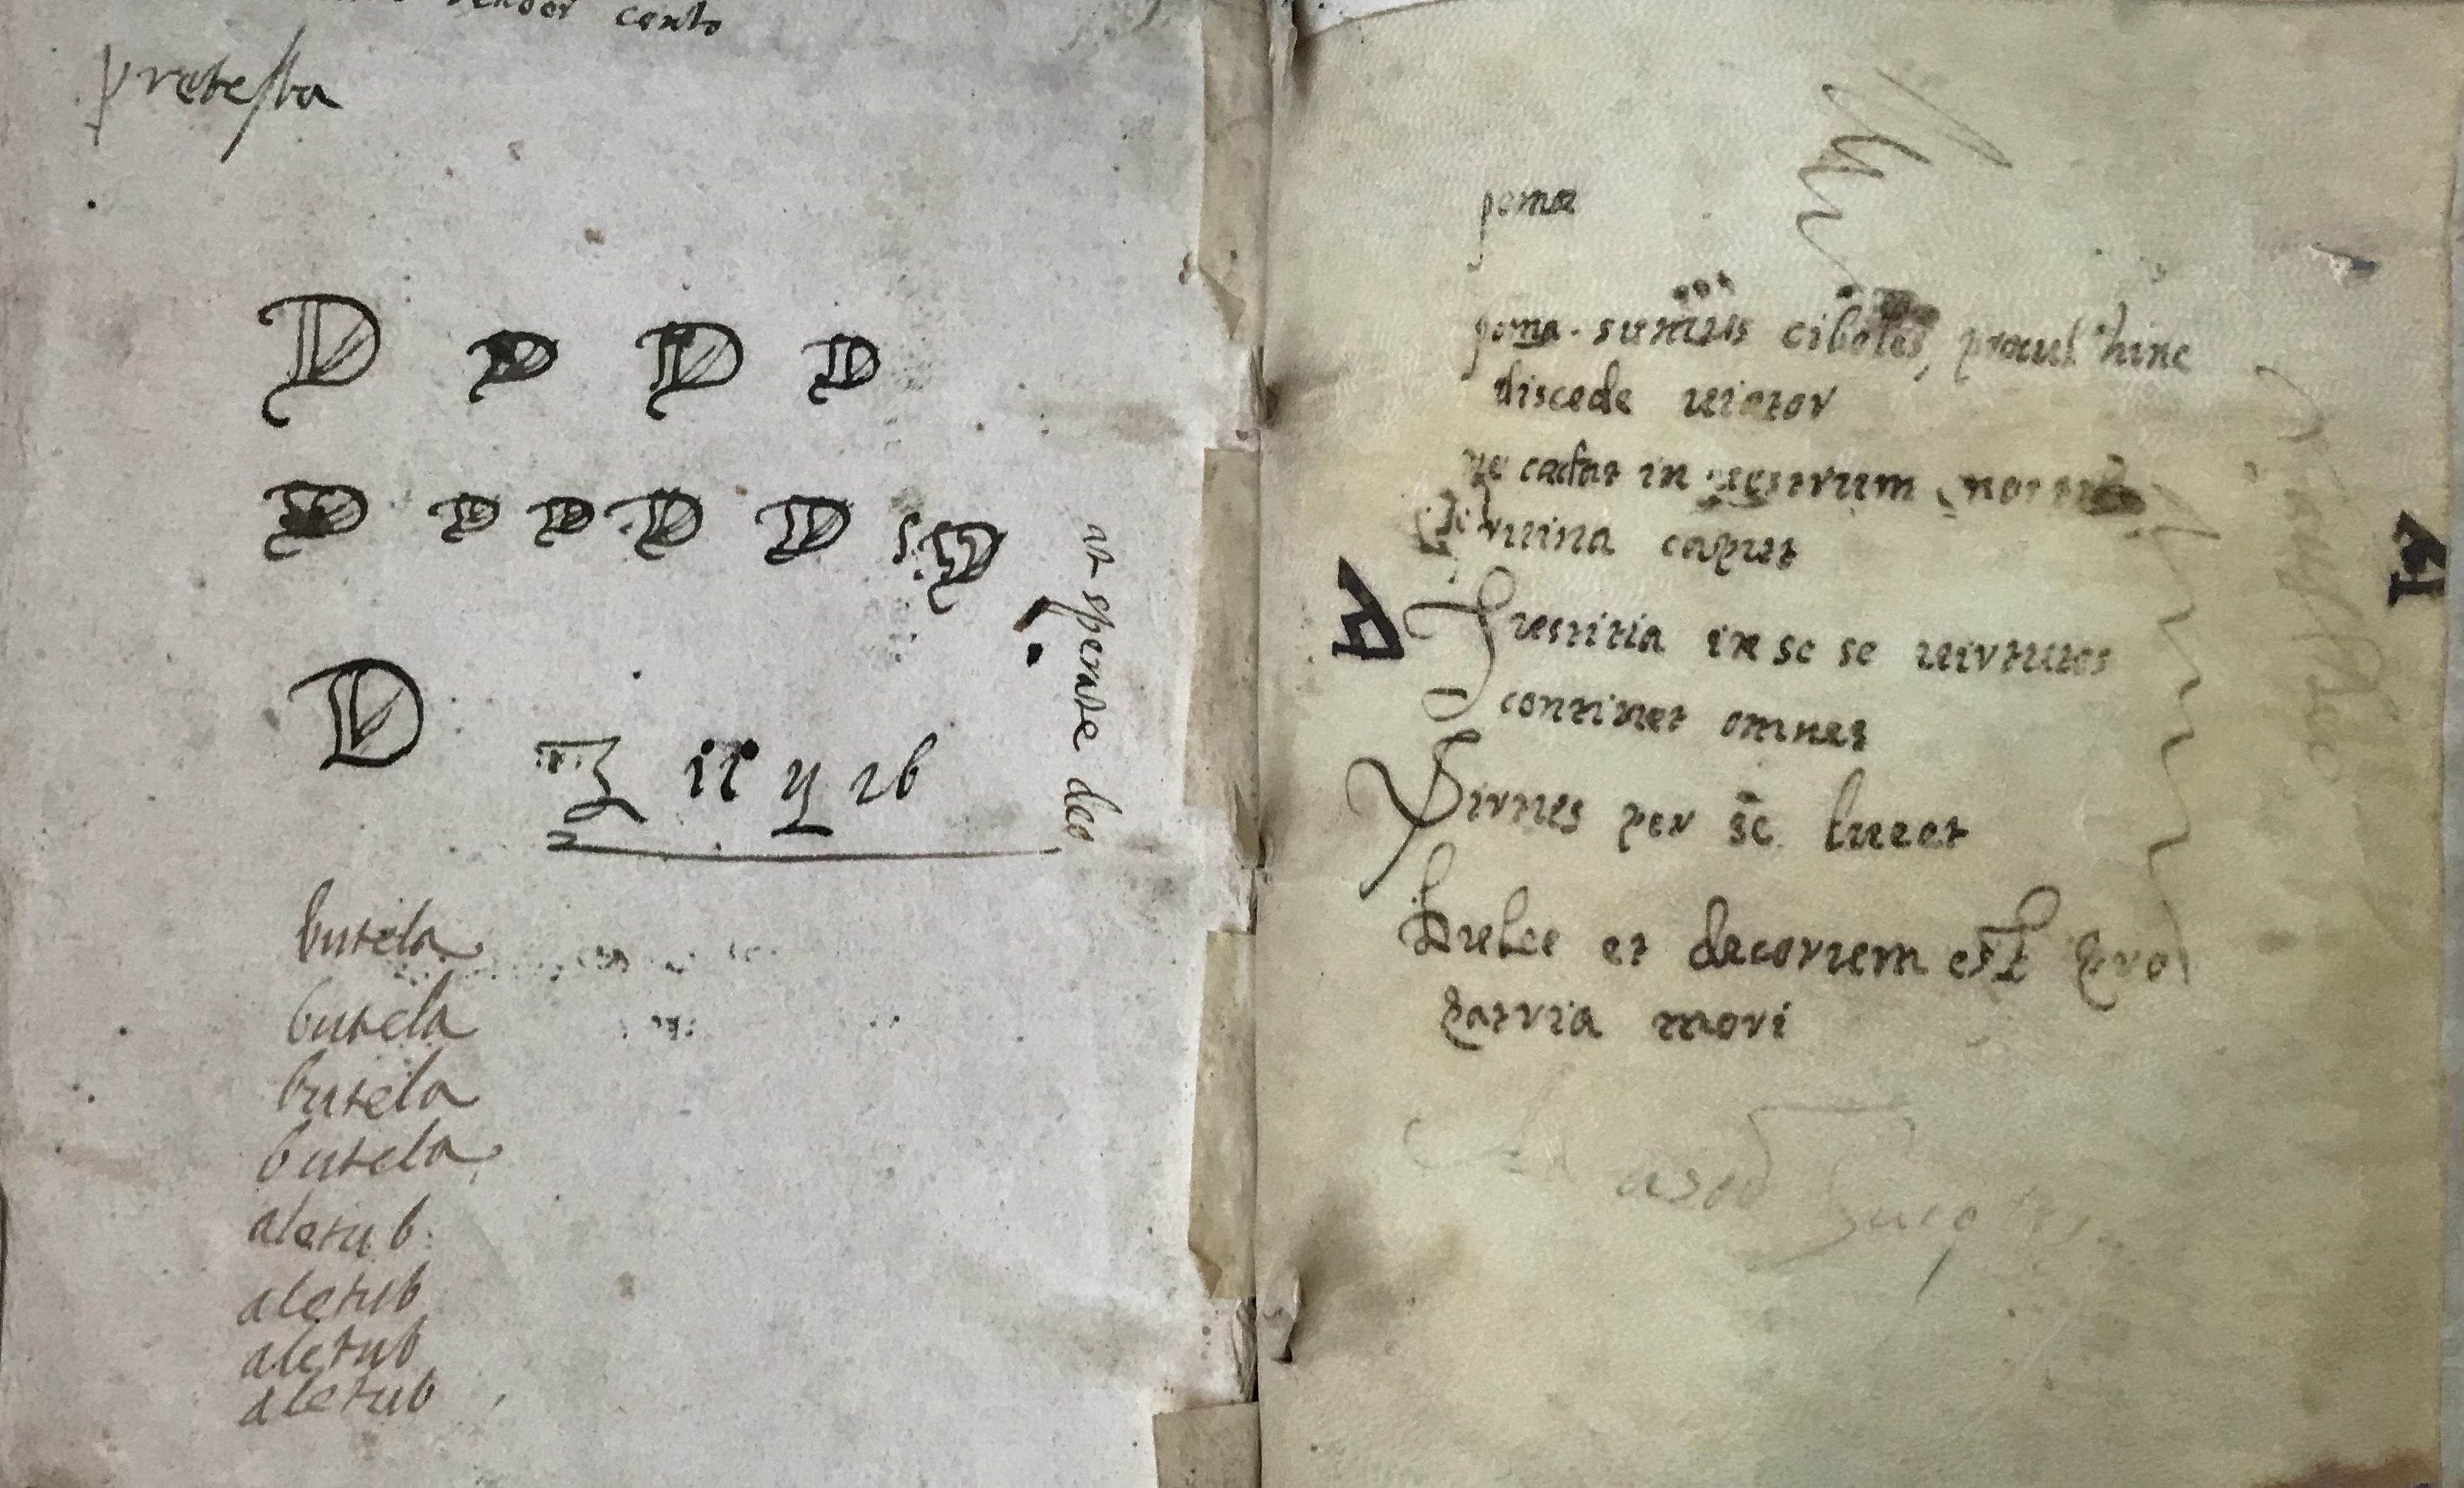 render conto
protesta
D D D D
D D D D D D
D
butela
butela
butela
butela
aletub
aletub
aletub
aletub
sperate deo
poma
poma sumus cibeles, procul hinc
discede uiator
ne cadat in uestrum nostra
ruina caput
Iustitia in se se uirtutes
continet omnes
Virtus per se lucet
Dulce et decorum est pro
patria mori